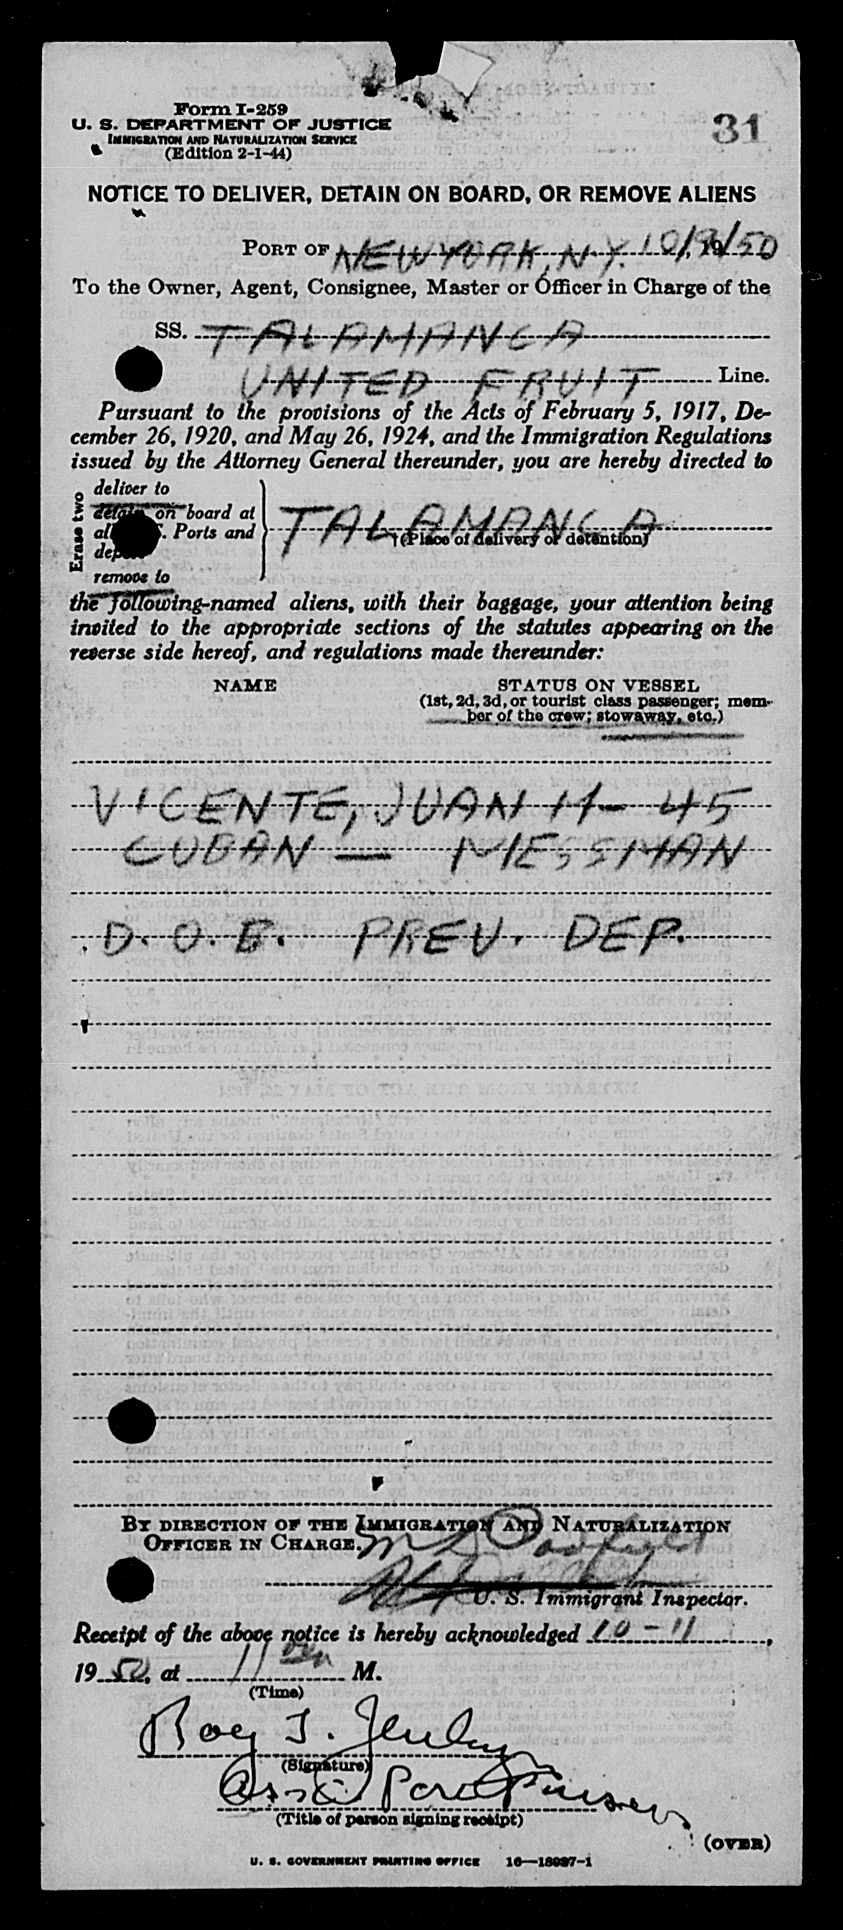 Form I-259
U. S. DEPARTMENT OF JUSTICE
IMMIGRATION AND NATURALIZATION SERVICE
(Edition 2-1-44)
31
NOTICE TO DELIVER, DETAIN ON BOARD, OR REMOVE ALIENS
PORT OF NEW YORK, N.Y. 10/9/, 1950
To the Owner, Agent, Consignee, Master or Officer in Charge of the
SS. TALAMANCA
UNITED FRUIT Line.
Pursuant to the provisions of the Acts of February 5, 1917, De-
cember 26, 1920, and May 26, 1924, and the Immigration Regulations
issued by the Attorney General thereunder, you are hereby directed to
Erase two
deliver to
detain on board at
all S. Ports and
remove to
TALAMANCA
†(Place of delivery or detention)
the following-named aliens, with their baggage, your attention being
invited to the appropriate sections of the statutes appearing on the
reverse side hereof, and regulations made thereunder:
NAME STATUS ON VESSEL
(1st, 2d, 3d, or tourist class passenger; mem-
ber of the crew; stowaway, etc.)
VICENTE, JUAN H- 45
CUBAN — MESSMAN
D.O.B. PREV. DEP.
BY DIRECTION OF THE IMMIGRATION AND NATURALIZATION
OFFICER IN CHARGE.
U. S. Immigrant Inspector.
Receipt of the above notice is hereby acknowledged 10-11,
1950, at 11 M.
(Time)
Roy J.
(Signature)
Asst Port
(Title of person signing receipt)
(OVER)
U. S. GOVERNMENT PRINTING OFFICE 16—18087-1